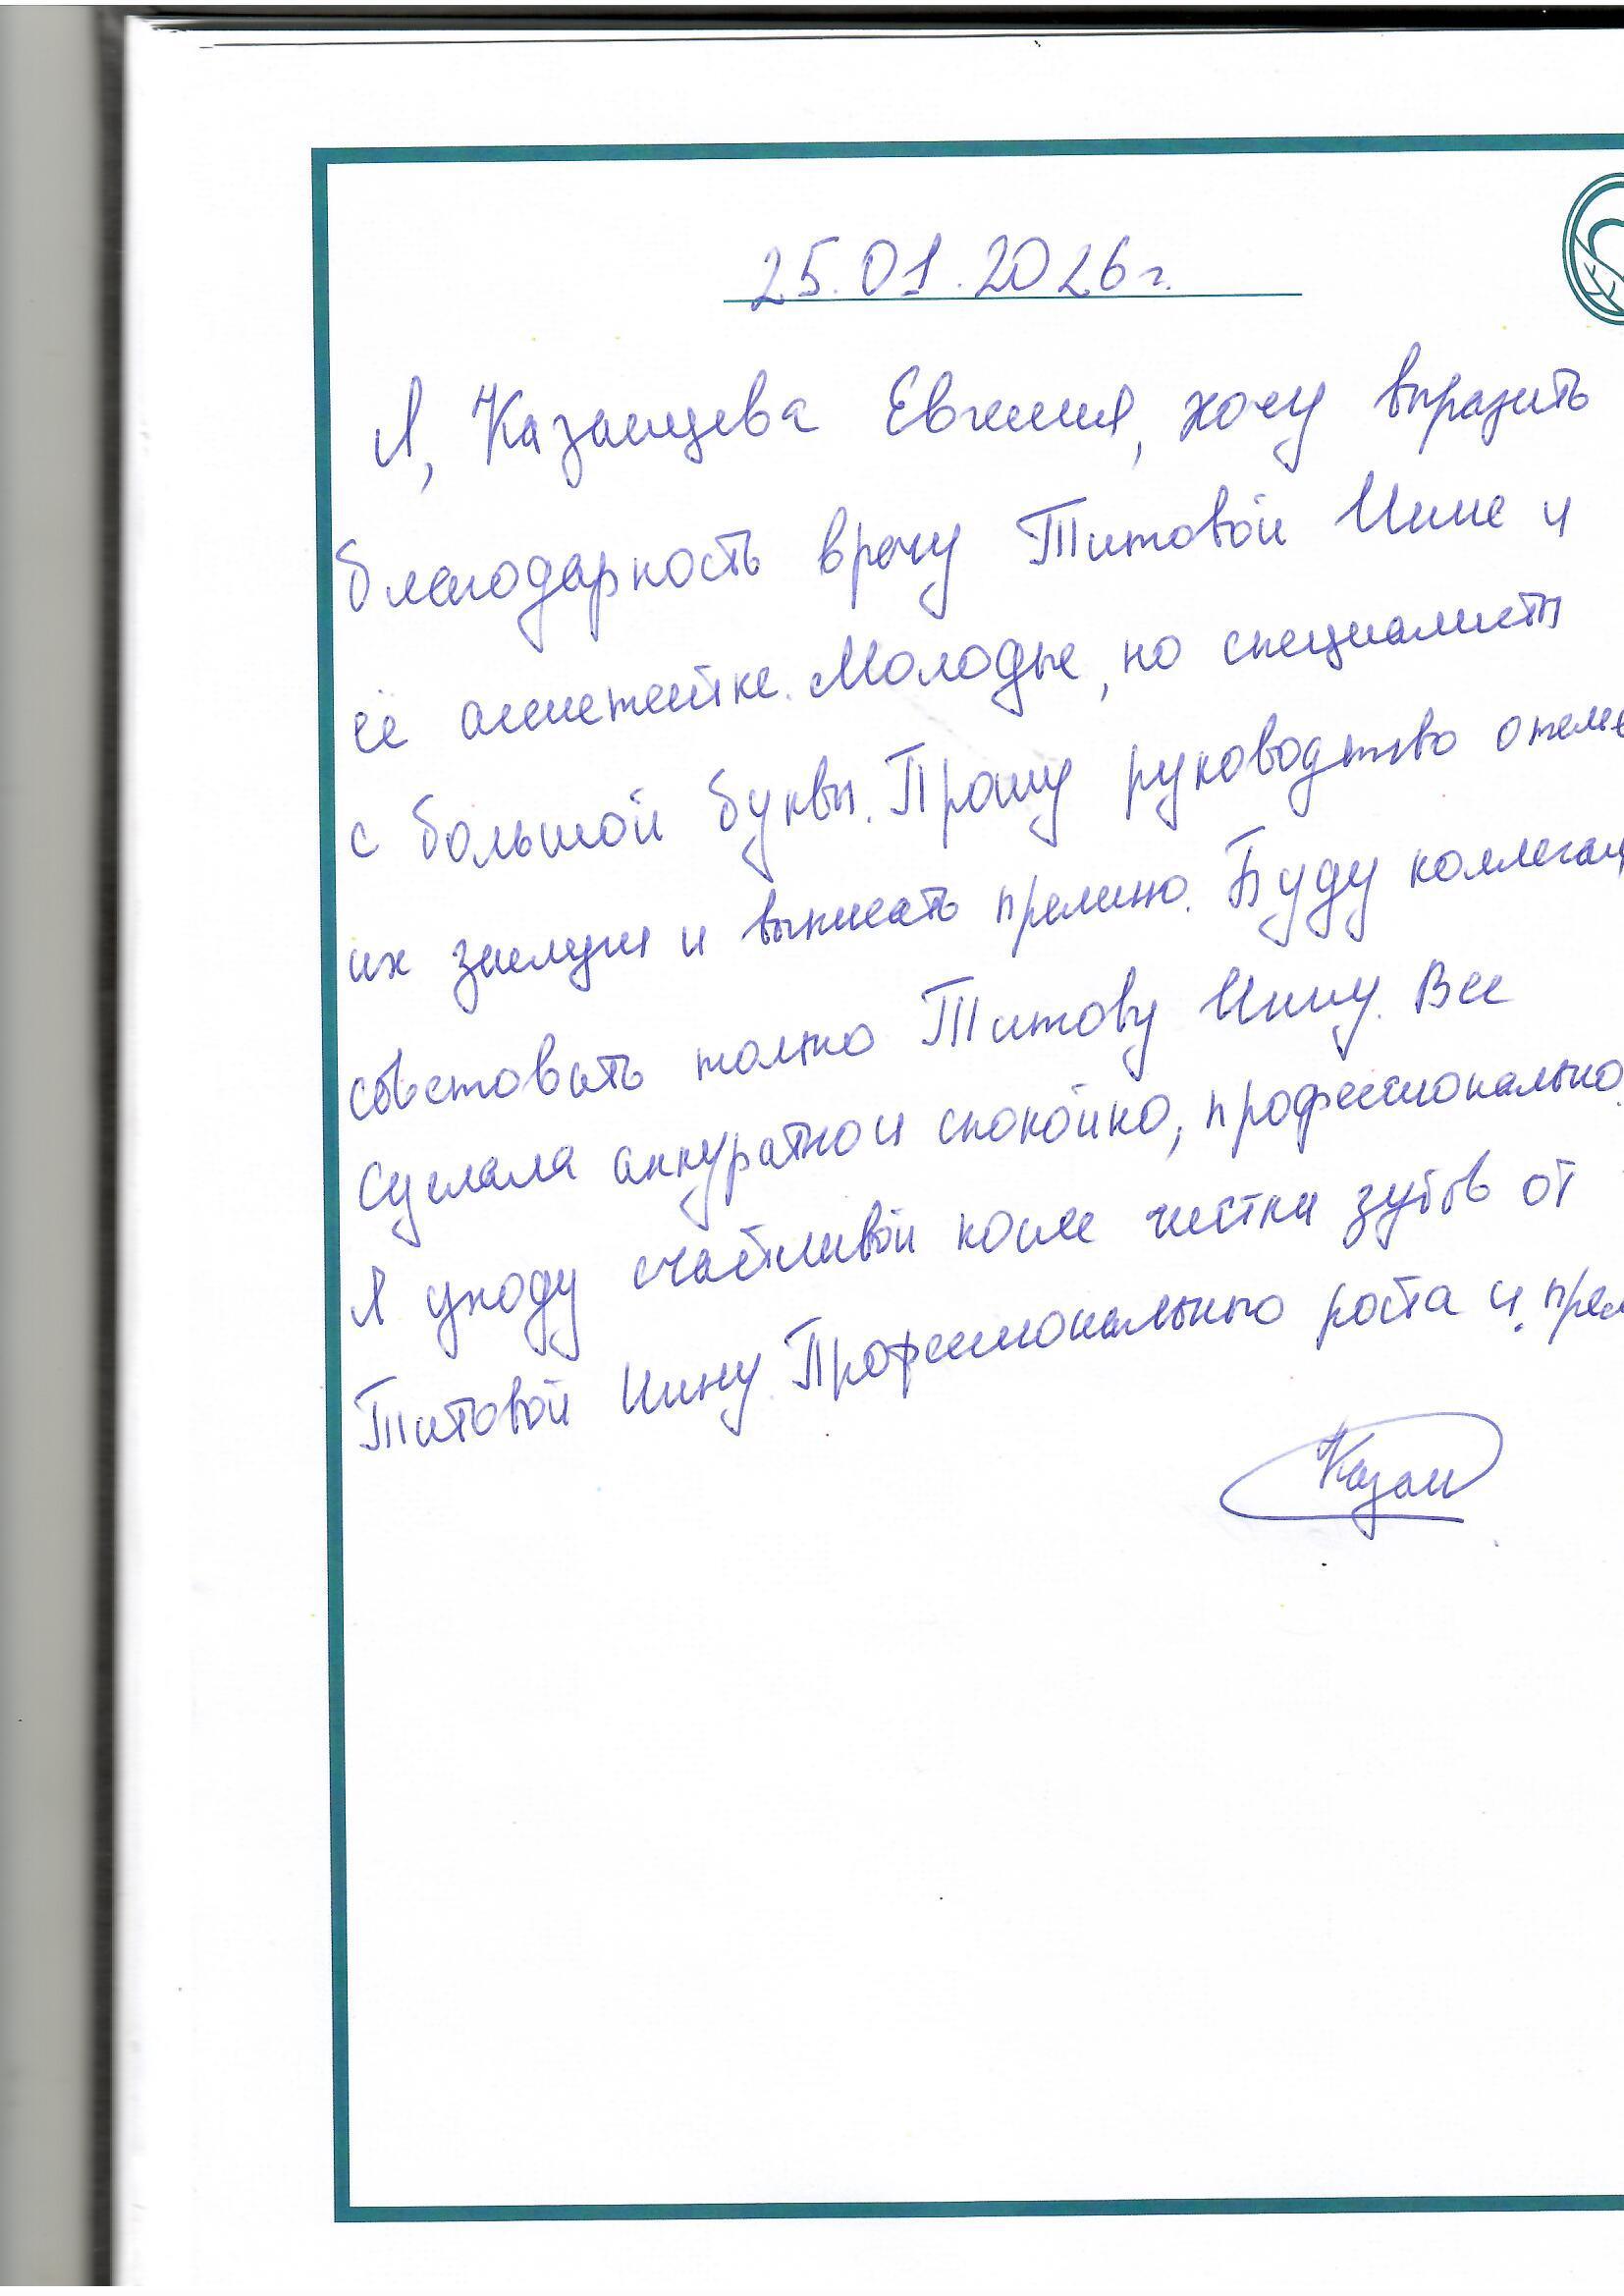 25.01.2026г.
Я, Казанцева Евгения, хочу выразить
благодарность врачу Титовой Инне и
её ассистентке. Молодые, но специалисты
с большой буквы. Прошу руководство отме
их заслуги и выписать премию. Буду коллегам
советовать только Титову Инну. Все
сделала аккуратно и спокойно, профессионально.
Я ухожу счастливой после чистки зубов от
Титовой Инны. Профессионального роста и прем
Казан